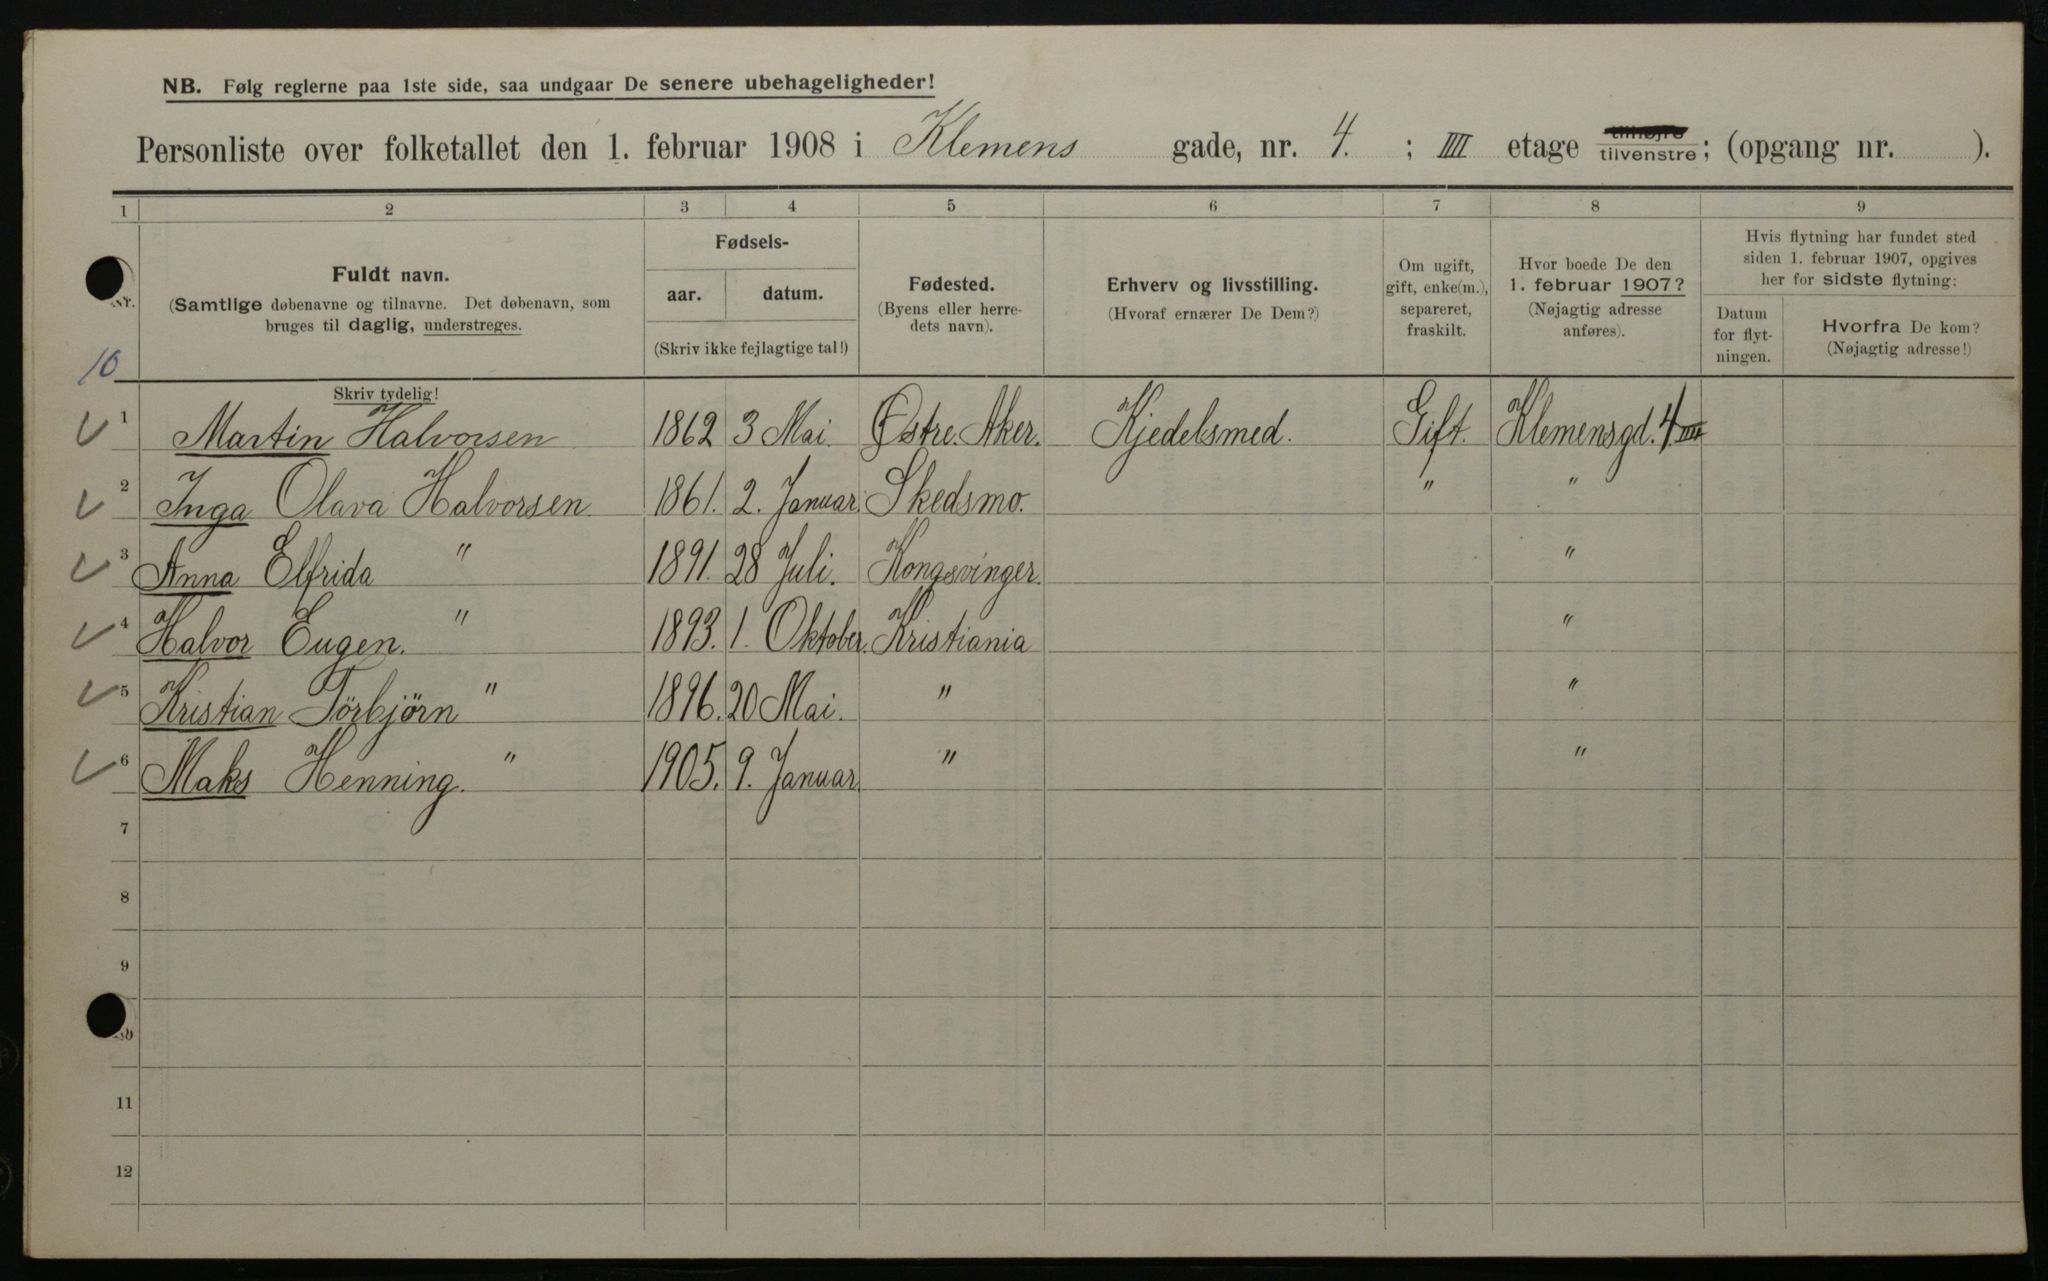 NB. Følg reglerne paa 1ste side, saa undgaar De senere ubehageligheder!
Personliste over folketallet den 1. februar 1908 i Klemens gade, nr. 4. ; IIII etage tilhøjre tilvenstre; (opgang nr. ).
1 2 3 4 5 6 7 8 9
Nr.
Fuldt navn.
(Samtlige døbenavne og tilnavne. Det døbenavn, som
bruges til daglig, understreges.
Fødsels-
aar. datum.
(Skriv ikke fejlagtige tal!)
Fødested.
(Byens eller herre-
dets navn).
Erhverv og livsstilling.
(Hvoraf ernærer De Dem?)
Om ugift,
gift, enke(m.),
separeret,
fraskilt.
Hvor boede De den
1. februar 1907?
(Nøjagtig adresse
anføres).
Hvis flytning har fundet sted
siden 1. februar 1907, opgives
her for sidste flytning:
Datum
for flyt-
ningen.
Hvorfra De kom?
(Nøjagtig adresse!)
10
Skriv tydelig!
1 Martin Halvorsen 1862 3 Mai. Østre. Aker. Kjedelsmed. Gift. Klemensgd. 4 IIII
2 Inga Olava Halvorsen 1861. 2. Januar. Skedsmo. " "
3 Anna Elfrida " 1891. 28 Juli. Kongsvinger. "
4 Halvor Eugen. " 1893. 1. Oktober. Kristiania "
5 Kristian Törbjörn " 1896. 20 Mai. " "
6 Maks Henning. " 1905. 9. Januar. " "
7
8
9
10
11
12